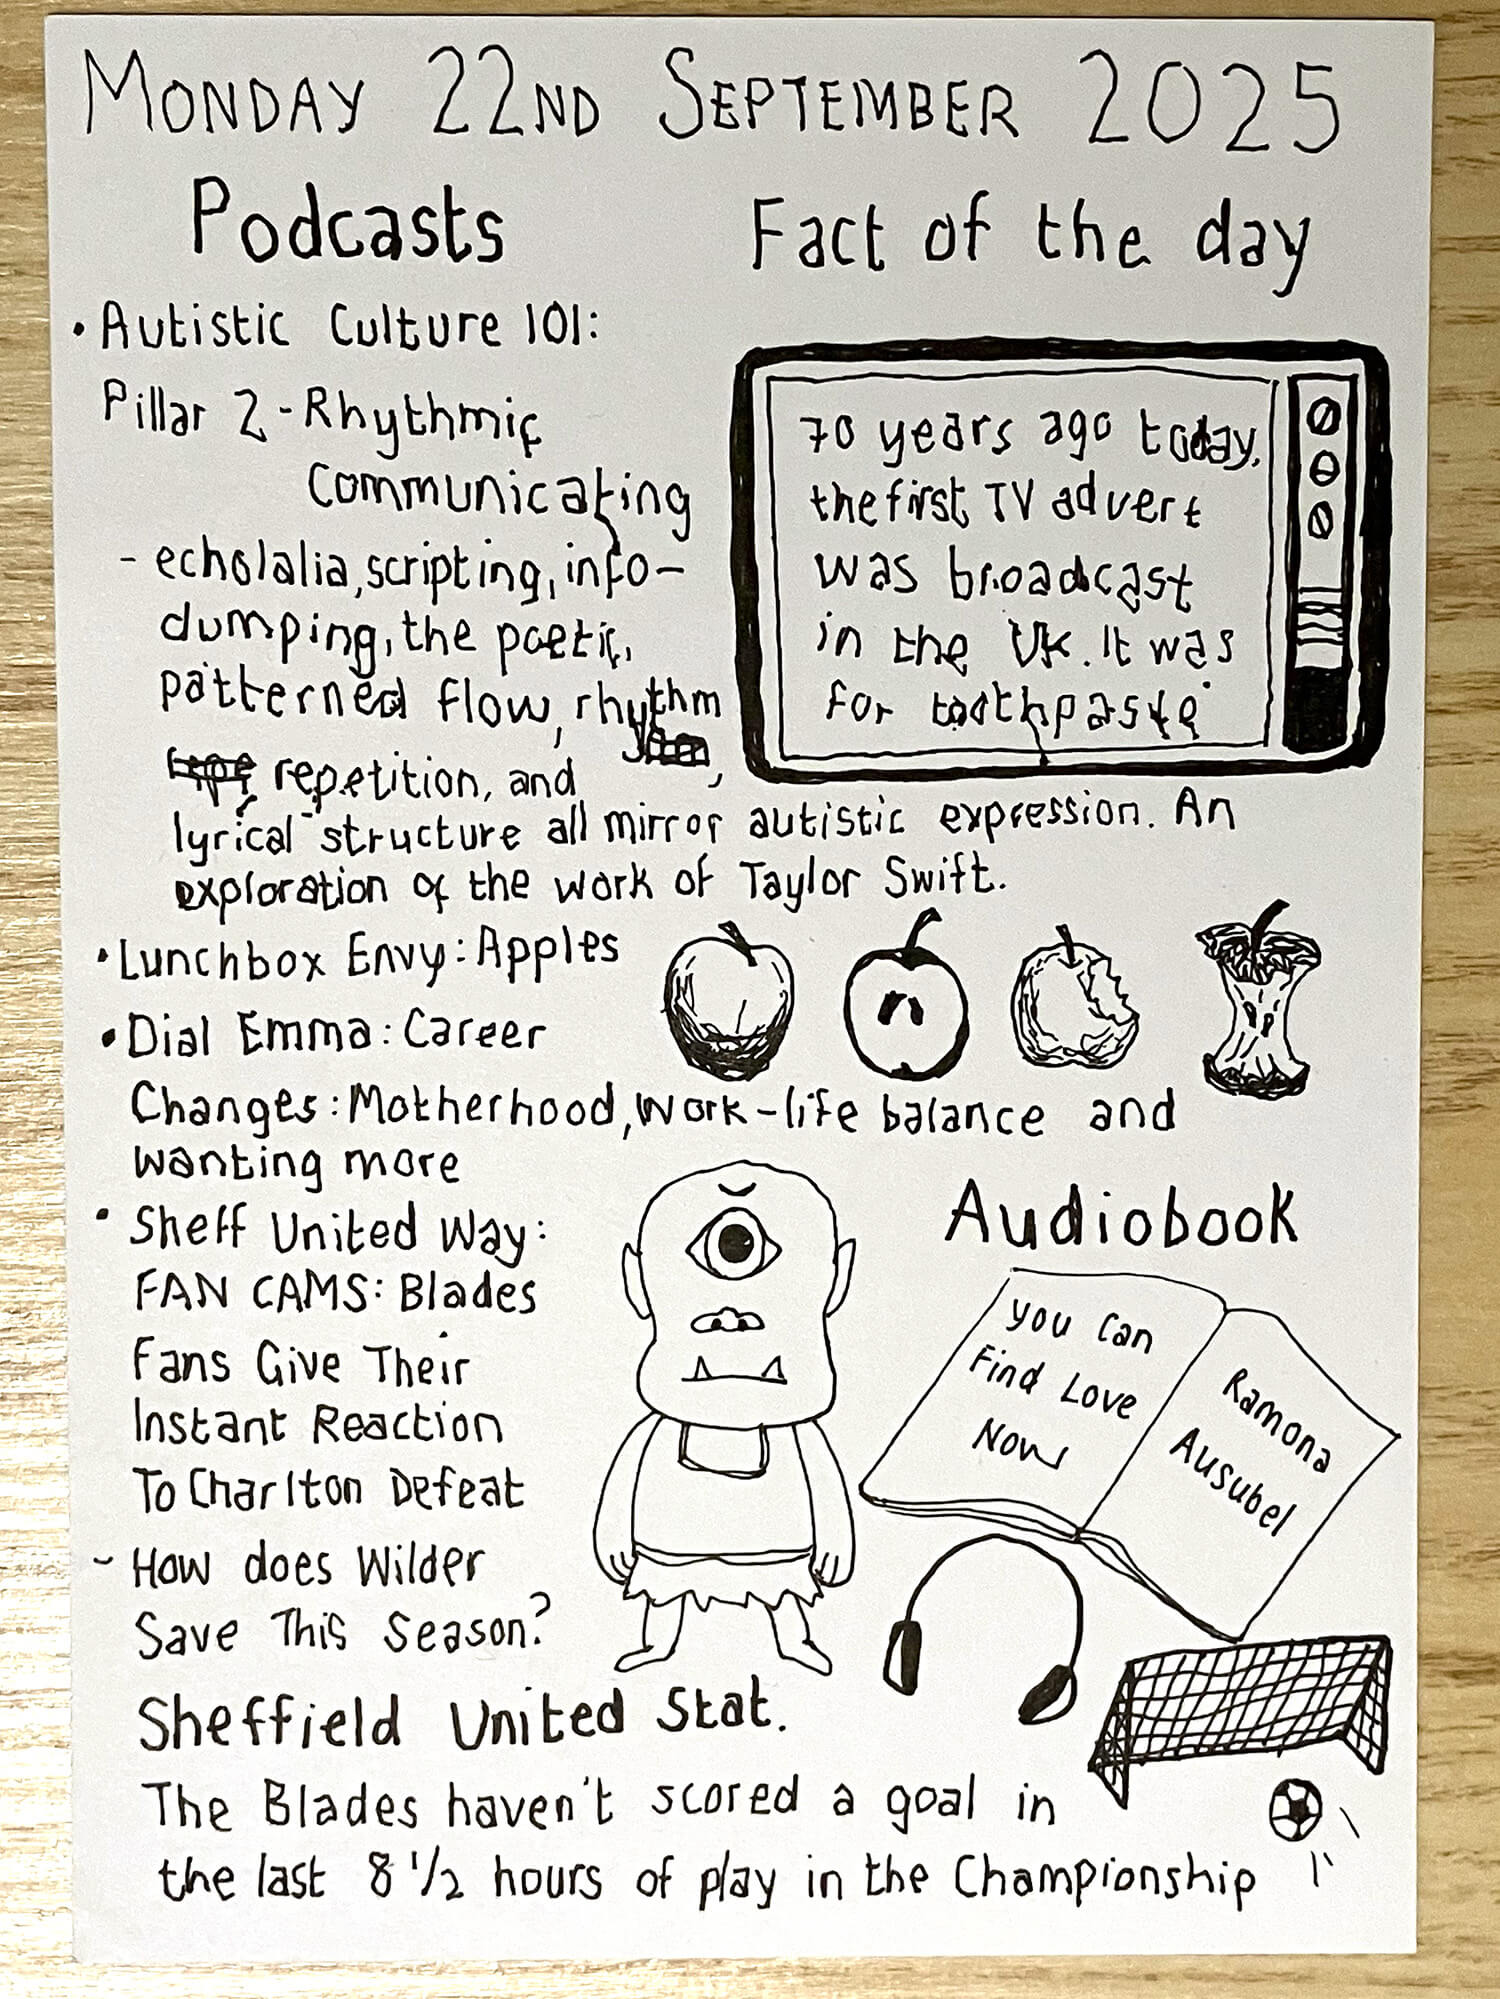 MONDAY 22ND SEPTEMBER 2025
Podcasts
• Autistic Culture 101:
Pillar 2 - Rhythmic
Communicating
- echolalia, scripting, info-
dumping, the poetic,
patterned flow, rhythm
repetition, and
lyrical structure all mirror autistic expression. An
exploration of the work of Taylor Swift.
• Lunchbox Envy: Apples
• Dial Emma: Career
Changes: Motherhood, work-life balance and
wanting more
• Sheff United Way:
FAN CAMS: Blades
Fans Give Their
Instant Reaction
To Charlton Defeat
- How does Wilder
Save This Season?
Fact of the day
70 years ago today,
the first TV advert
was broadcast
in the UK. It was
for toothpaste
Audiobook
You Can
Find Love
Now
Ramona
Ausubel
Sheffield United Stat.
The Blades haven't scored a goal in
the last 8 1/2 hours of play in the Championship